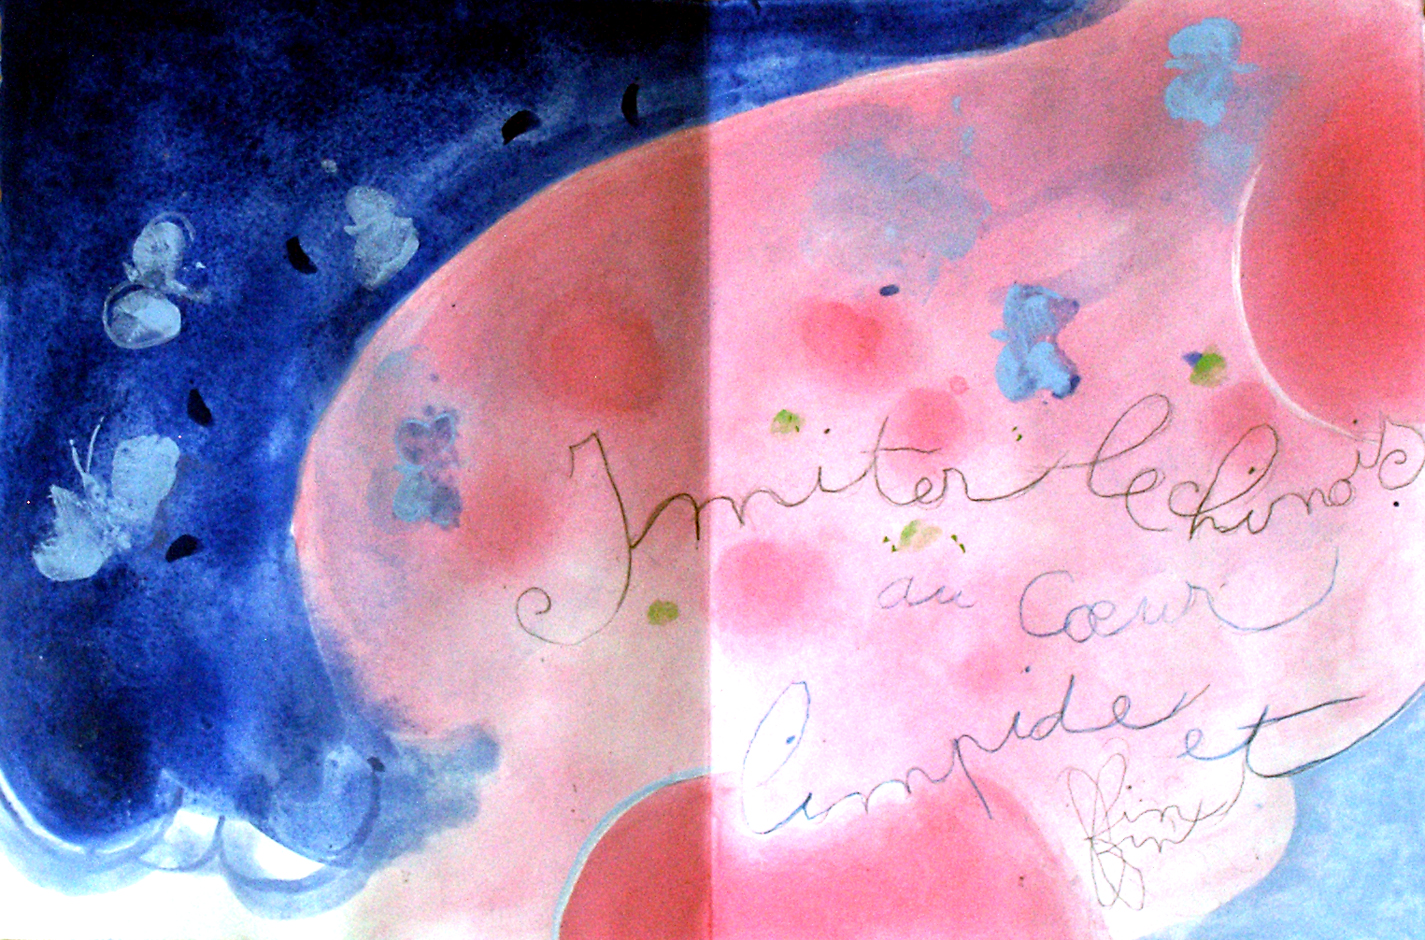 Imiter le chinois
au Cœur
limpide et
fin